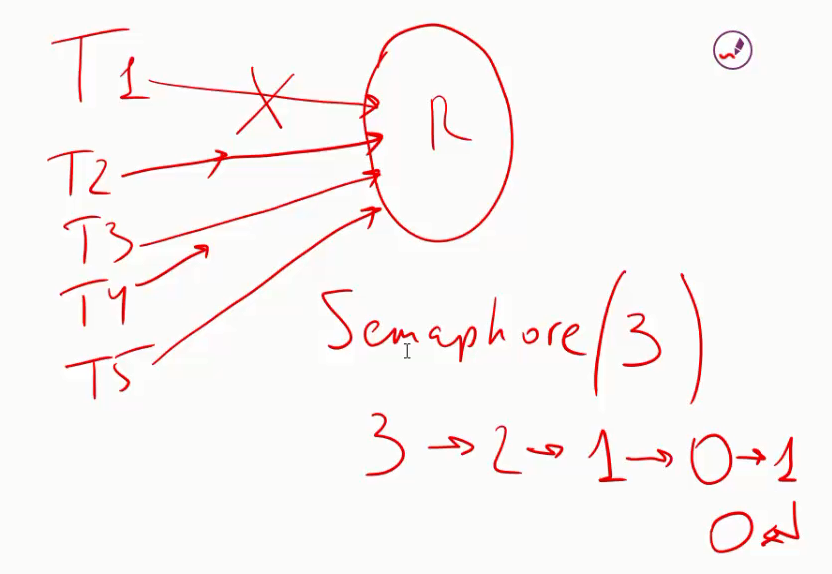 T1
R
T2
T3
T4
T5
Semaphore(3)
3 → 2 → 1 → 0 → 1
0 ↲